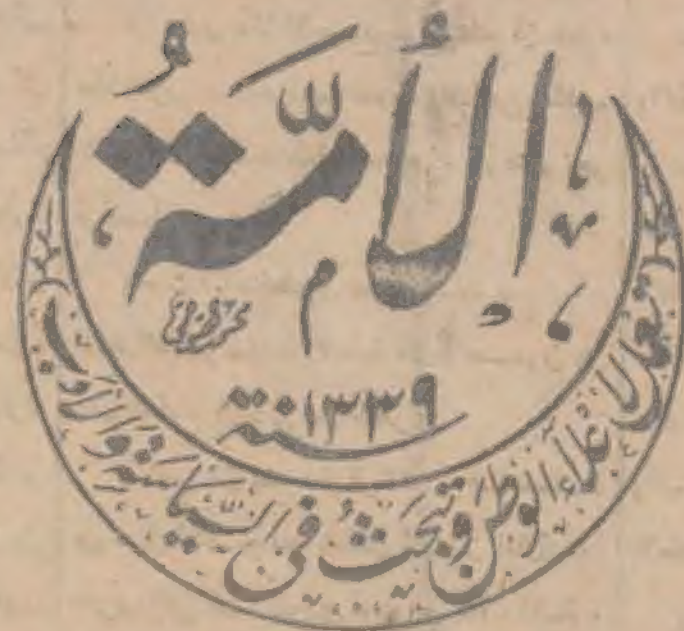 الأُمَّةُ
سنة ١٣٣٩
تعمل لاعلاء الوطن وتبحثُ في السياسة والأدب